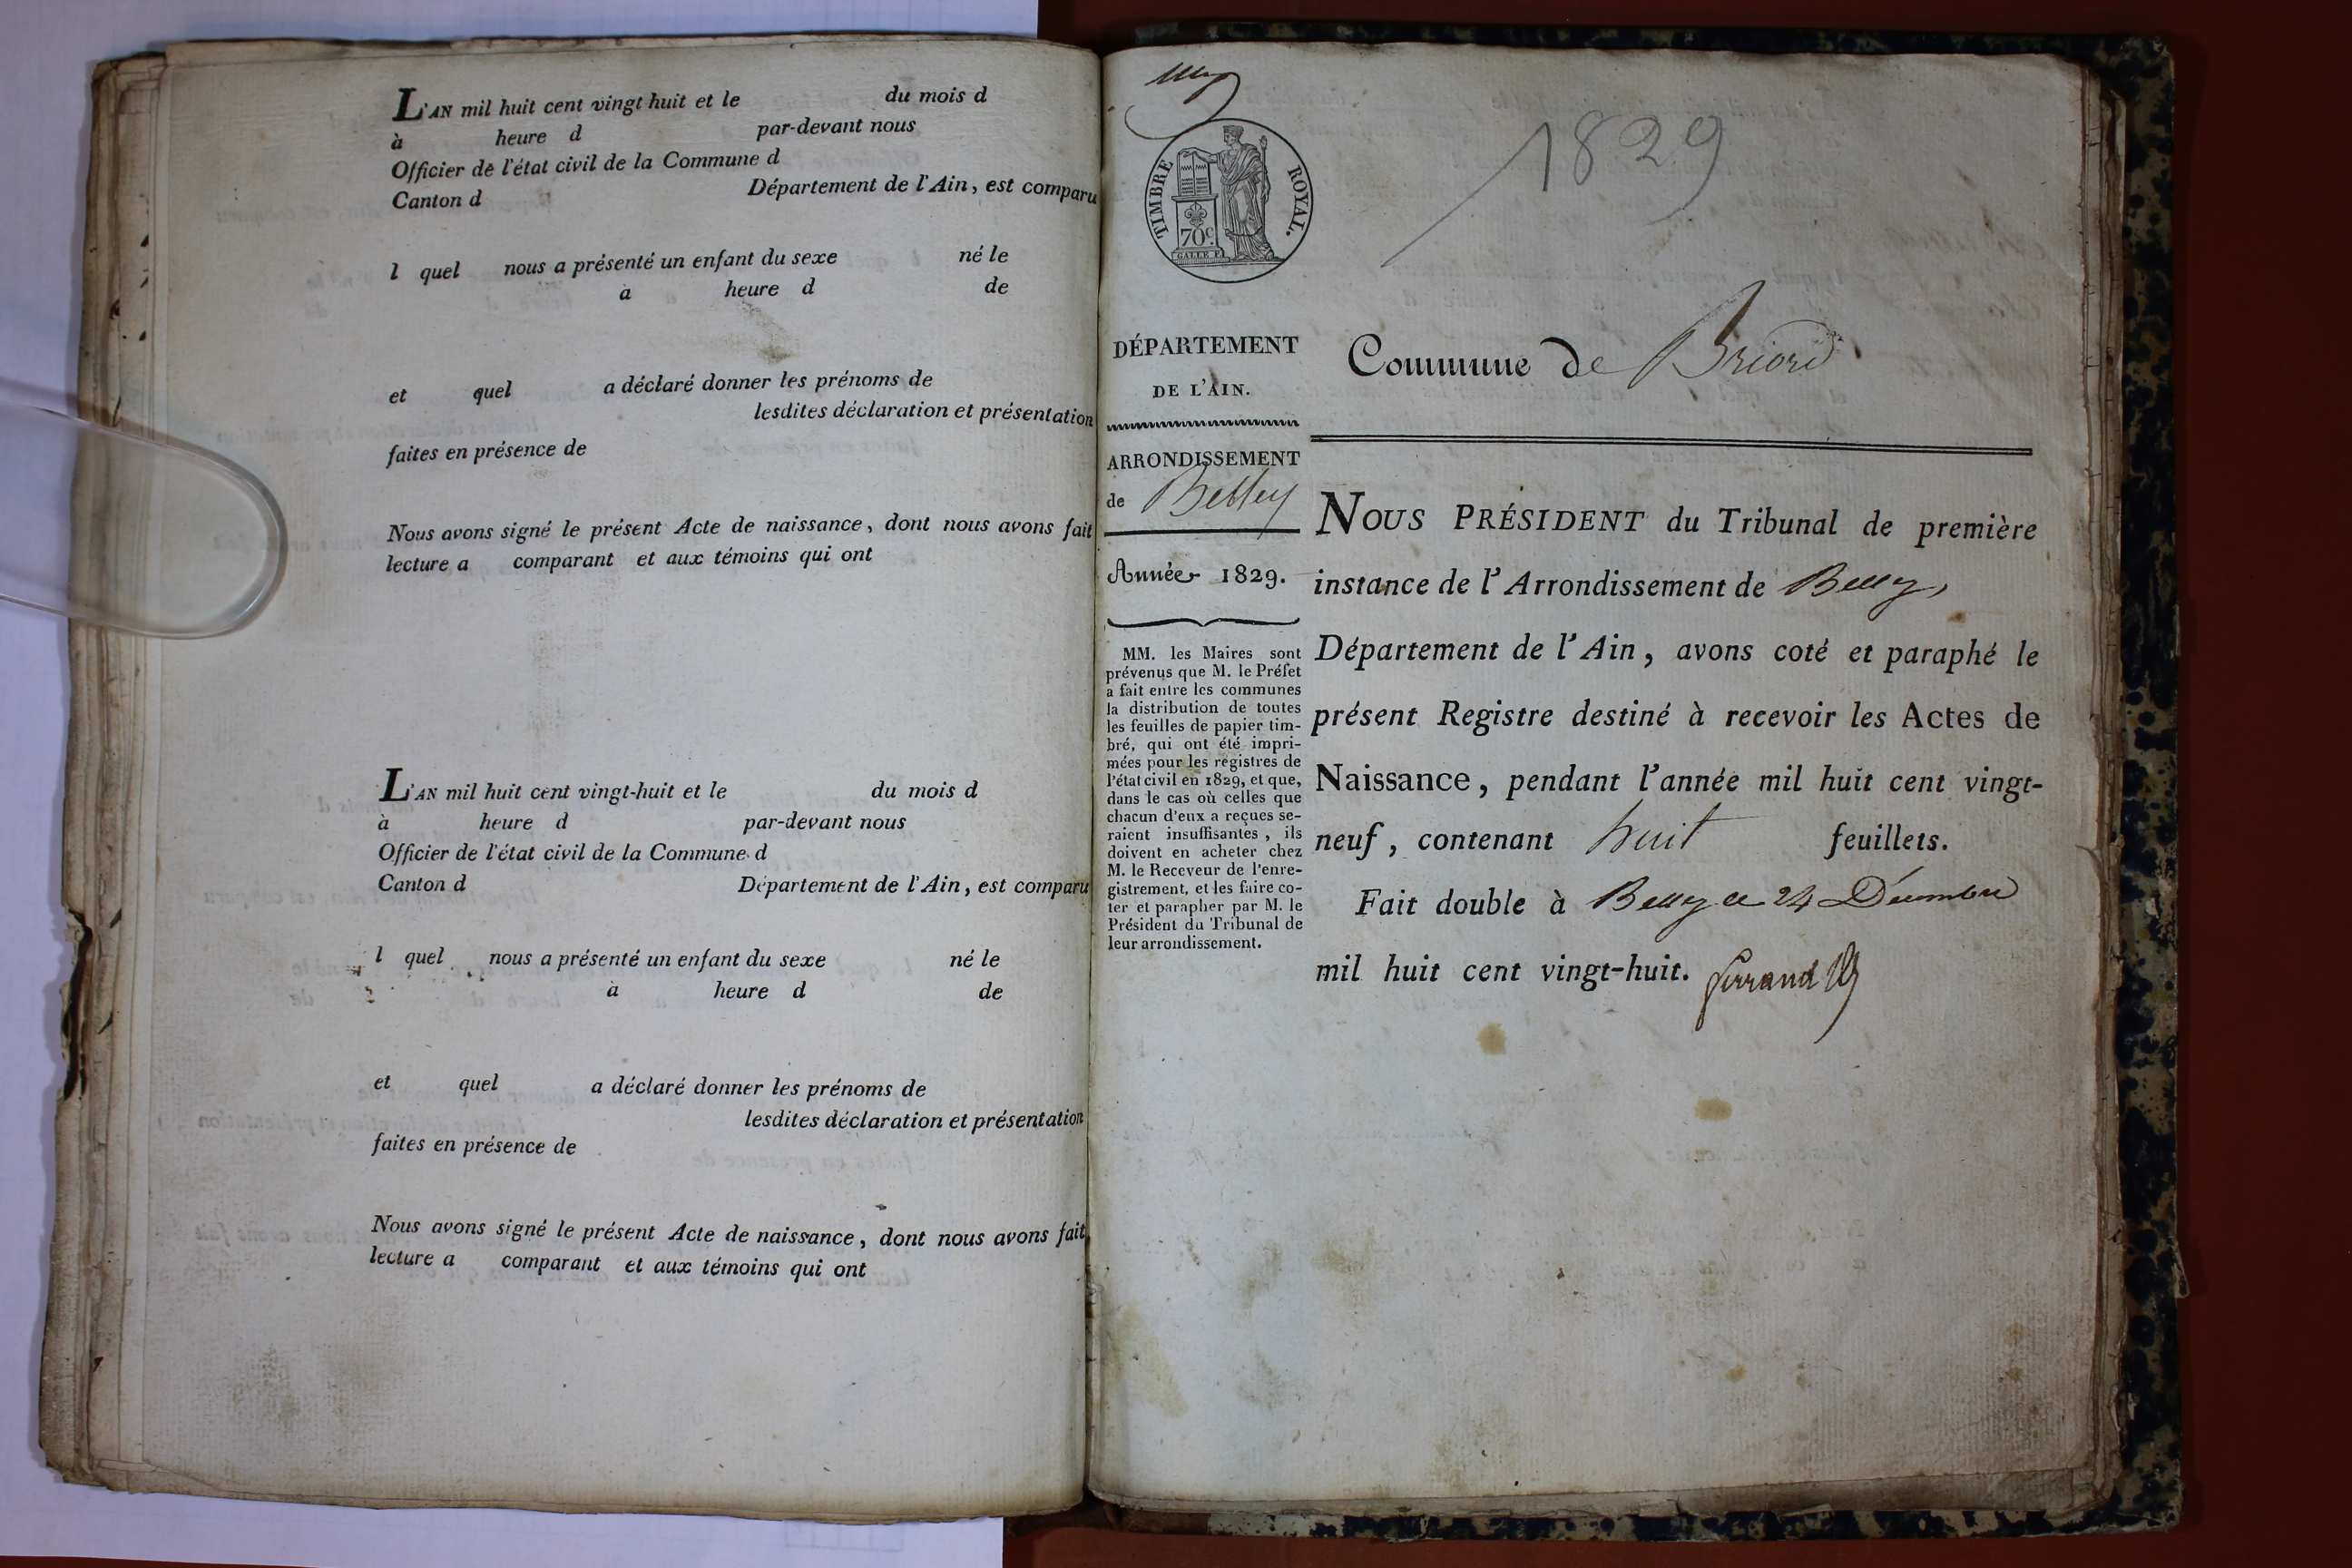 L'AN mil huit cent vingt-huit et le du mois d
à heure d par-devant nous
Officier de l'état civil de la Commune d
Canton d Département de l'Ain, est comparu
l quel nous a présenté un enfant du sexe né le
à heure d de
et quel a déclaré donner les prénoms de
lesdites déclaration et présentation
faites en présence de
Nous avons signé le présent Acte de naissance, dont nous avons fait
lecture a comparant et aux témoins qui ont
L'AN mil huit cent vingt-huit et le du mois d
à heure d par-devant nous
Officier de l'état civil de la Commune d
Canton d Département de l'Ain, est comparu
l quel nous a présenté un enfant du sexe né le
à heure d de
et quel a déclaré donner les prénoms de
lesdites déclaration et présentation
faites en présence de
Nous avons signé le présent Acte de naissance, dont nous avons fait
lecture a comparant et aux témoins qui ont
TIMBRE ROYAL.
70c.
GALLE F.
1829
DÉPARTEMENT
DE L'AIN.
ARRONDISSEMENT
de Belley
Année 1829.
MM. les Maires sont
prévenus que M. le Préfet
a fait entre les communes
la distribution de toutes
les feuilles de papier tim-
bré, qui ont été impri-
mées pour les registres de
l'état civil en 1829, et que,
dans le cas où celles que
chacun d'eux a reçues se-
raient insuffisantes, ils
doivent en acheter chez
M. le Receveur de l'enre-
gistrement, et les faire co-
ter et parapher par M. le
Président du Tribunal de
leur arrondissement.
Commune de Briord
NOUS PRÉSIDENT du Tribunal de première
instance de l'Arrondissement de Belley,
Département de l'Ain, avons coté et paraphé le
présent Registre destiné à recevoir les Actes de
Naissance, pendant l'année mil huit cent vingt-
neuf, contenant huit feuillets.
Fait double à Belley ce 24 Décembre
mil huit cent vingt-huit.